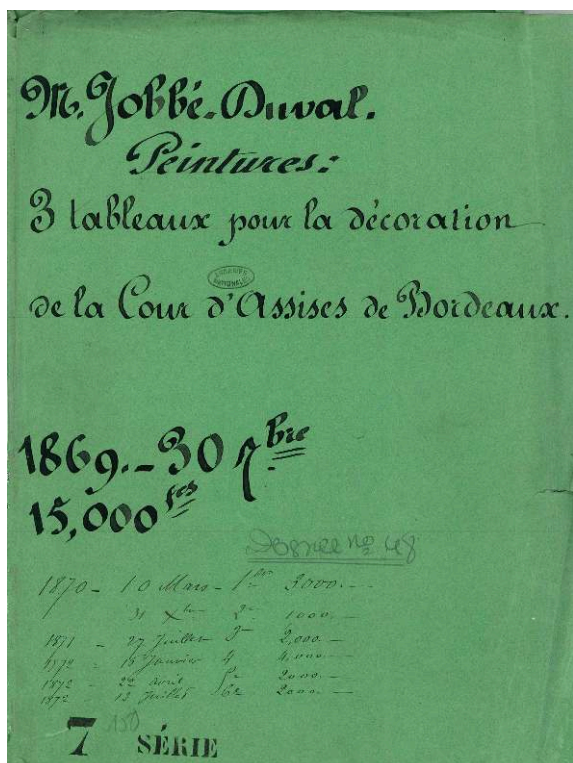 M. Jobbé-Duval.
Peintures:
3 tableaux pour la décoration
ARCHIVES NATIONALES
de la Cour d'Assises de Bordeaux.
1869.-30 7bre
15,000 fcs
1870 - 10 Mars - 1er 3000.-
31 Xbre 2e 1000.-
1871 - 27 Juillet 3e 2,000.-
1872 - 18 Janvier 4 4,000.-
1872 - 22 avril 5e 2000.-
1872 - 12 Juillet 6e 2000.-
7 SÉRIE